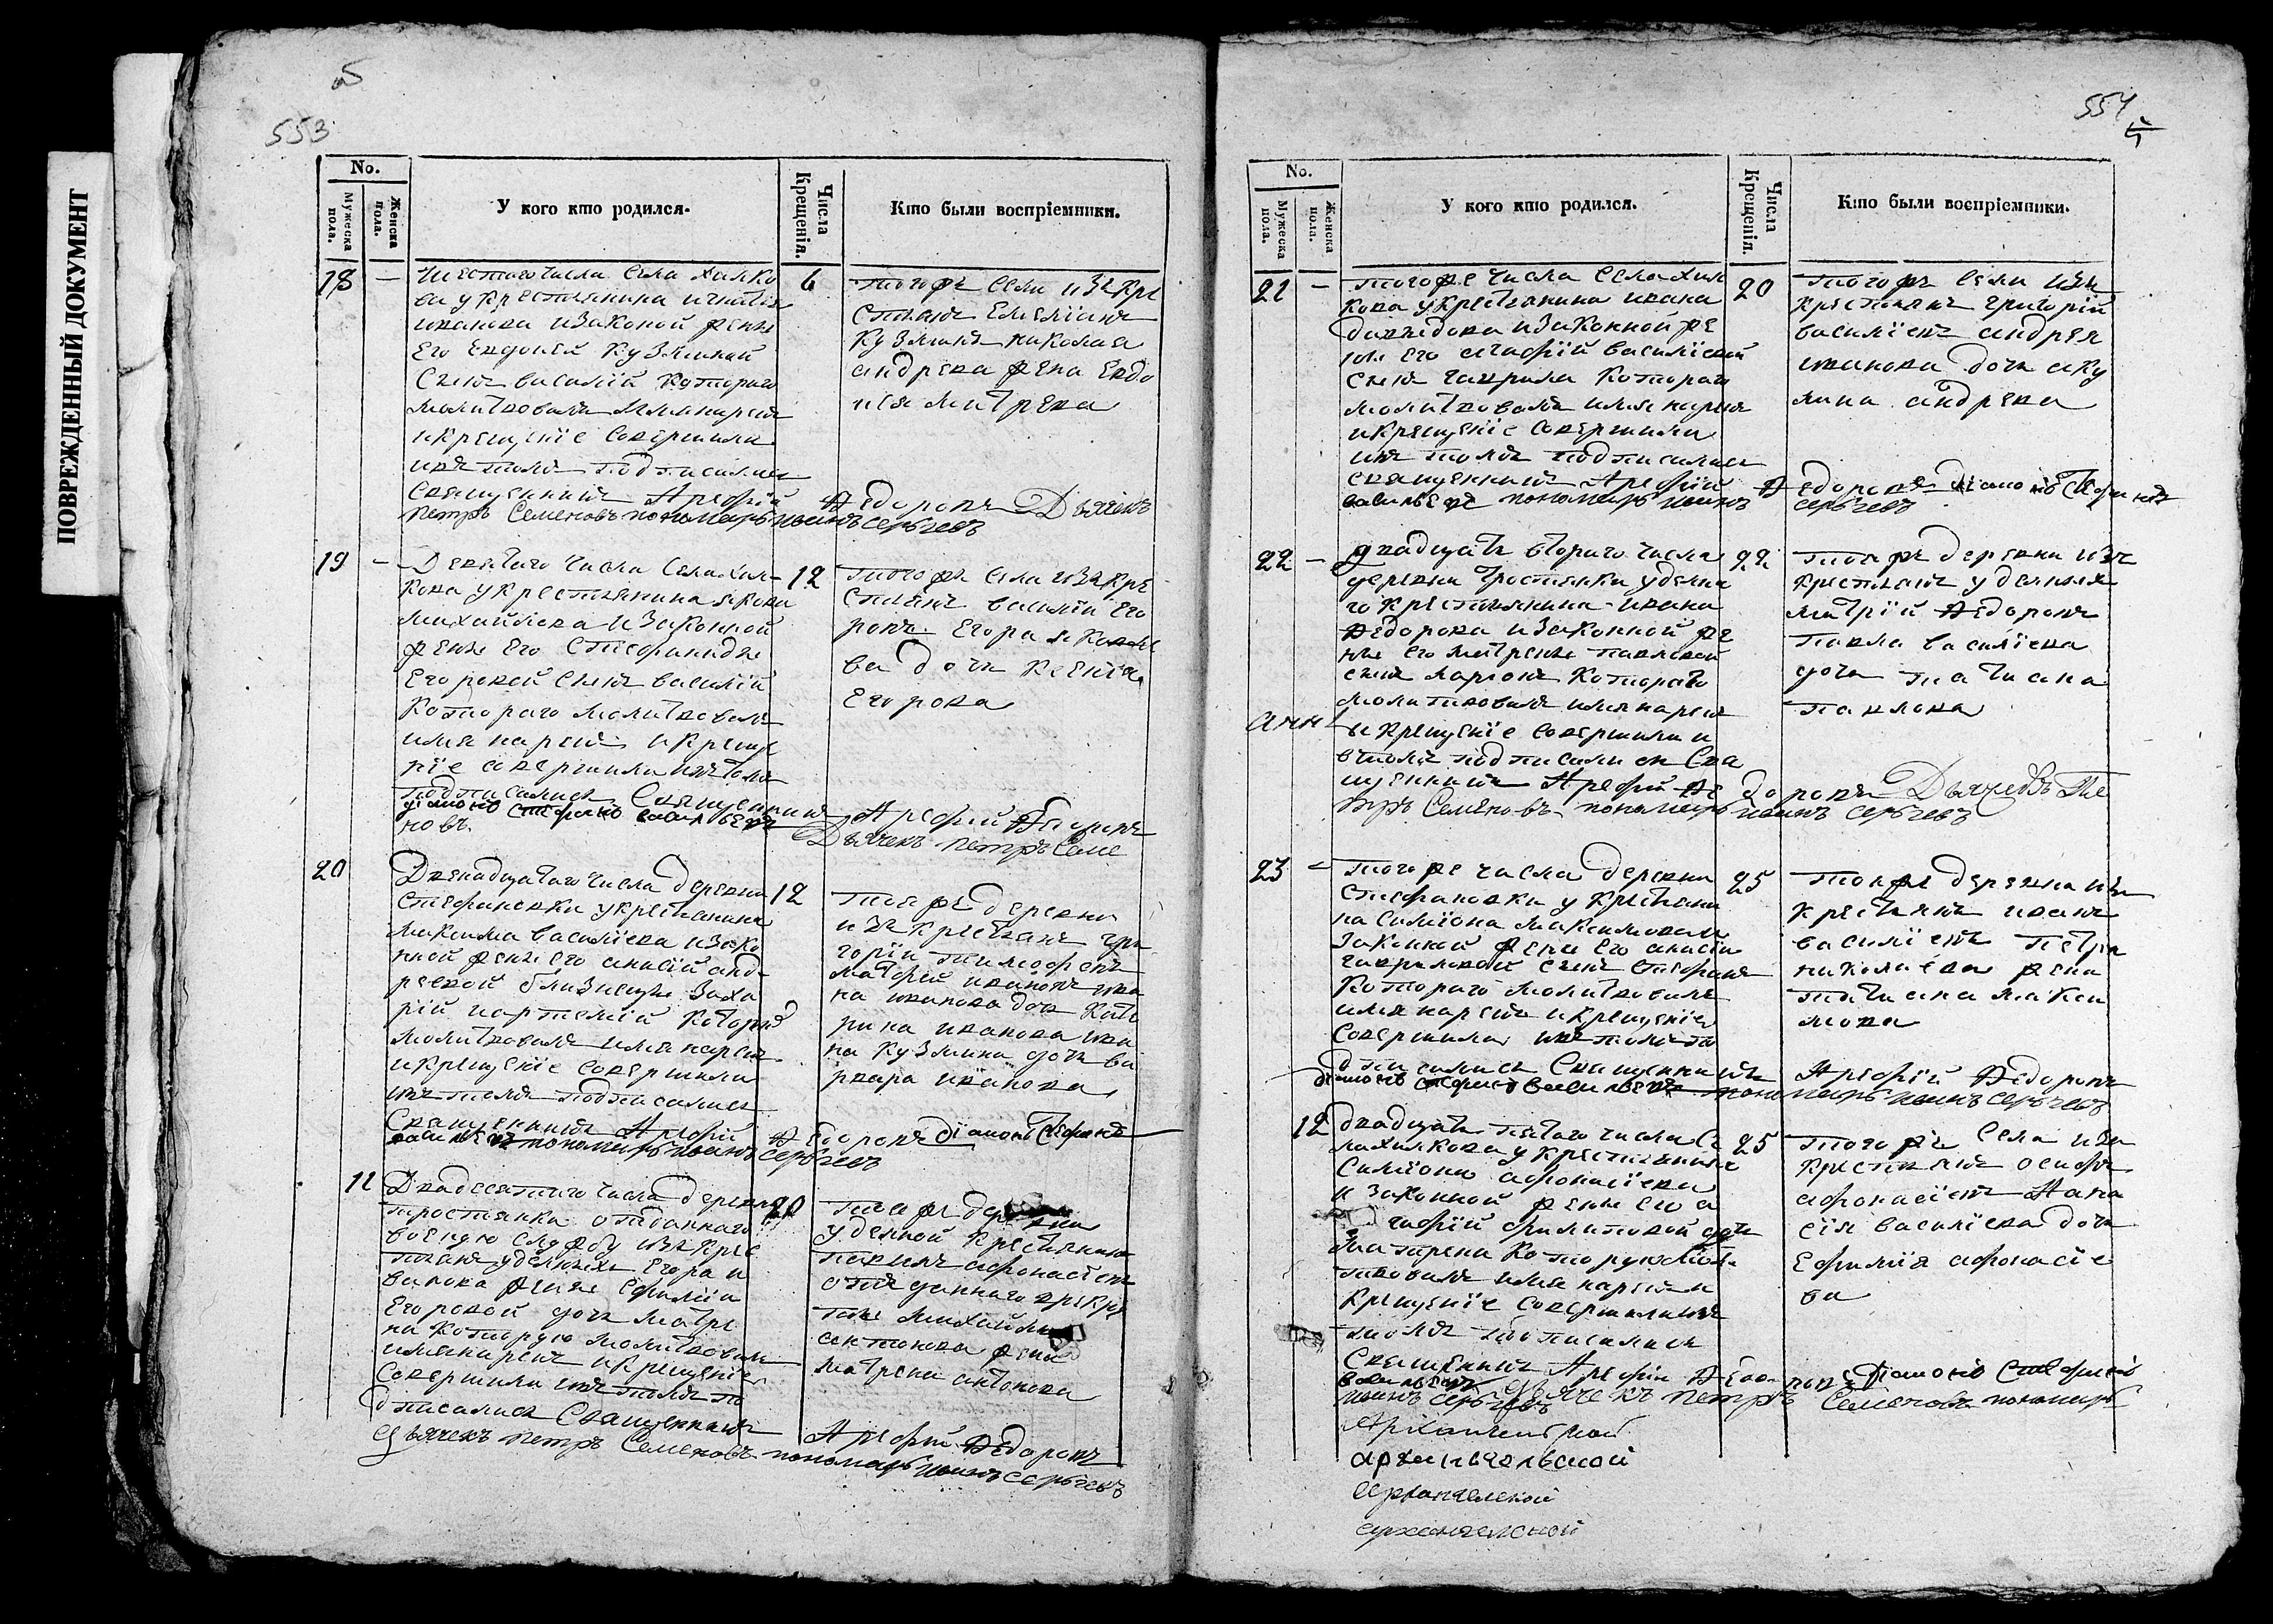 ПОВРЕЖДЕННЫЙ ДОКУМЕНТ
553
No.
Мужеска пола.
Женска пола.
У кого кто родился.
Числа Крещенія.
Кто были воспріемники.
18 –
Шестаго числа села Халко
ва у крестьянина игнатія
иванова и законой жены
его Евдокеи Кузминой
сынъ василій котораго
молитвовалъ имянарекъ
и крещеніе совершили
ивъ томъ подписались
священникъ Арефій Ѳедоровъ Дьячекъ
петръ Семеновъ пономарь иванъ сергѣевъ
6
тогожъ села изъ кре
стьянъ Емеліанъ
Кузминъ николая
андрева жена Евдо
кія митрева
19 –
Девятаго числа села хал-
кова у крестьянина якова
михайлова и законной
жены его Стефаниды
Егоровой сынъ василій
котораго молитвовалъ
имя нарекъ и креще
ніе совершили ивътомъ
подписались Священникъ Арефій Ѳедоровъ
діаконъ стефанъ васильевъ Дьячекъ петръ Семе
новъ
12
тогожъ села изъ кре
стьянъ василій Его
ровъ Егора яковле
ва дочь ксенія
Егорова
20
Двенадцатаго числа деревни
стефановки у крестьянина
максима василіева и зако
нной жены его анисіи анд-
реевой близнецы заха
рій иартемій которыхъ
молитвовалъ имя нарекъ
и крещеніе совершили
ивъ томъ подписались
Священникъ Арефій Ѳедоровъ діаконъ Стефанъ
васильевъ пономарь иванъ сергѣевъ
12
тояже деревни
изъ крестьянъ гри
горій тимофевъ
матфей ивановъ ива
на иванова дочь кате
рина иванова ива
на кузмина дочь ва
рвара иванова
11
Двадесятаго числа деревни
тростянки отданнаго
военую службу изъ крес
тьянъ удельныхъ Егора и
ванова жены ефиміи
Егоровой дочь матре
на которую молитвовалъ
имянарекъ и крещеніе
совершили ивъ томъ по
дписались Священникъ Арефій Ѳедоровъ
дьячекъ петръ Семеновъ пономарь иванъ сергѣевъ
20
тояже деревни
удельной крестьянинъ
афонасіевъ
михайлы
антонова жена
матрена антонова
554
No.
Мужеска пола.
Женска пола.
У кого кто родился.
Числа Крещенія.
Кто были воспріемники.
21 –
тогоже числа села хал
кова у крестьянина ивана
давыдова и законной же
ны его агафіи василіевой
сынъ гаврила котораго
молитвовалъ имя нарекъ
и крещеніе совершили
ивъ томъ подписались
священникъ Арефій Ѳедоровъ діаконъ Стефанъ
васильевъ пономарь иванъ сергѣевъ
20
тогожъ села изъ
крестьянъ григорій
василіевъ андрея
иванова дочь аку
лина андрева
22 –
двадцать втораго числа
деревни тростянки удельна
го крестьянина ивана
Ѳедорова и законной же
ны его матрены павловой
сынъ ларіонъ котораго
молитвовалъ имянарекъ
и крещеніе совершили и
втомъ подписались Свя
щенникъ Арефій Ѳедоровъ Дьячекъ Пе
тръ Семеновъ пономарь иванъ сергѣевъ
22
тояжъ деревни изъ
крестьянъ удельныхъ
митрій Ѳедоровъ
павла василіева
дочь татиана
павлова
23 –
тогоже числа деревни
стефановки у крестьяни
на симіона максимова и
законной жены его анисіи
гавриловой сынъ стефанъ
котораго молитвовалъ
имя нарекъ и крещеніе
совершили ивъ томъ по
дписались Священникъ Арефій Ѳедоровъ
діаконъ стефанъ васильевъ пономарь иванъ сергѣевъ
25
тояже деревни изъ
крестьянъ иванъ
василіевъ петра
николаева жена
татиана макси
мова
12
двадцать пятаго числа се
ла халкова у крестьянина
симіона афонасіева
и законной жены его а
гафіи филиповой дочь
матрена которую моли
твовалъ имя нарекъ и
крещеніе совершили ивъ
томъ подписались
Священникъ Арефій Ѳедоровъ діаконъ Стефанъ
васильевъ дьячекъ петръ Семеновъ пономарь
иванъ сергѣевъ
25
тогожъ села изъ
крестьянъ осифъ
афонасіевъ Анас
ія василіева дочь
ефимія афонасіе
ва
архангельской
архангельской
архангельской